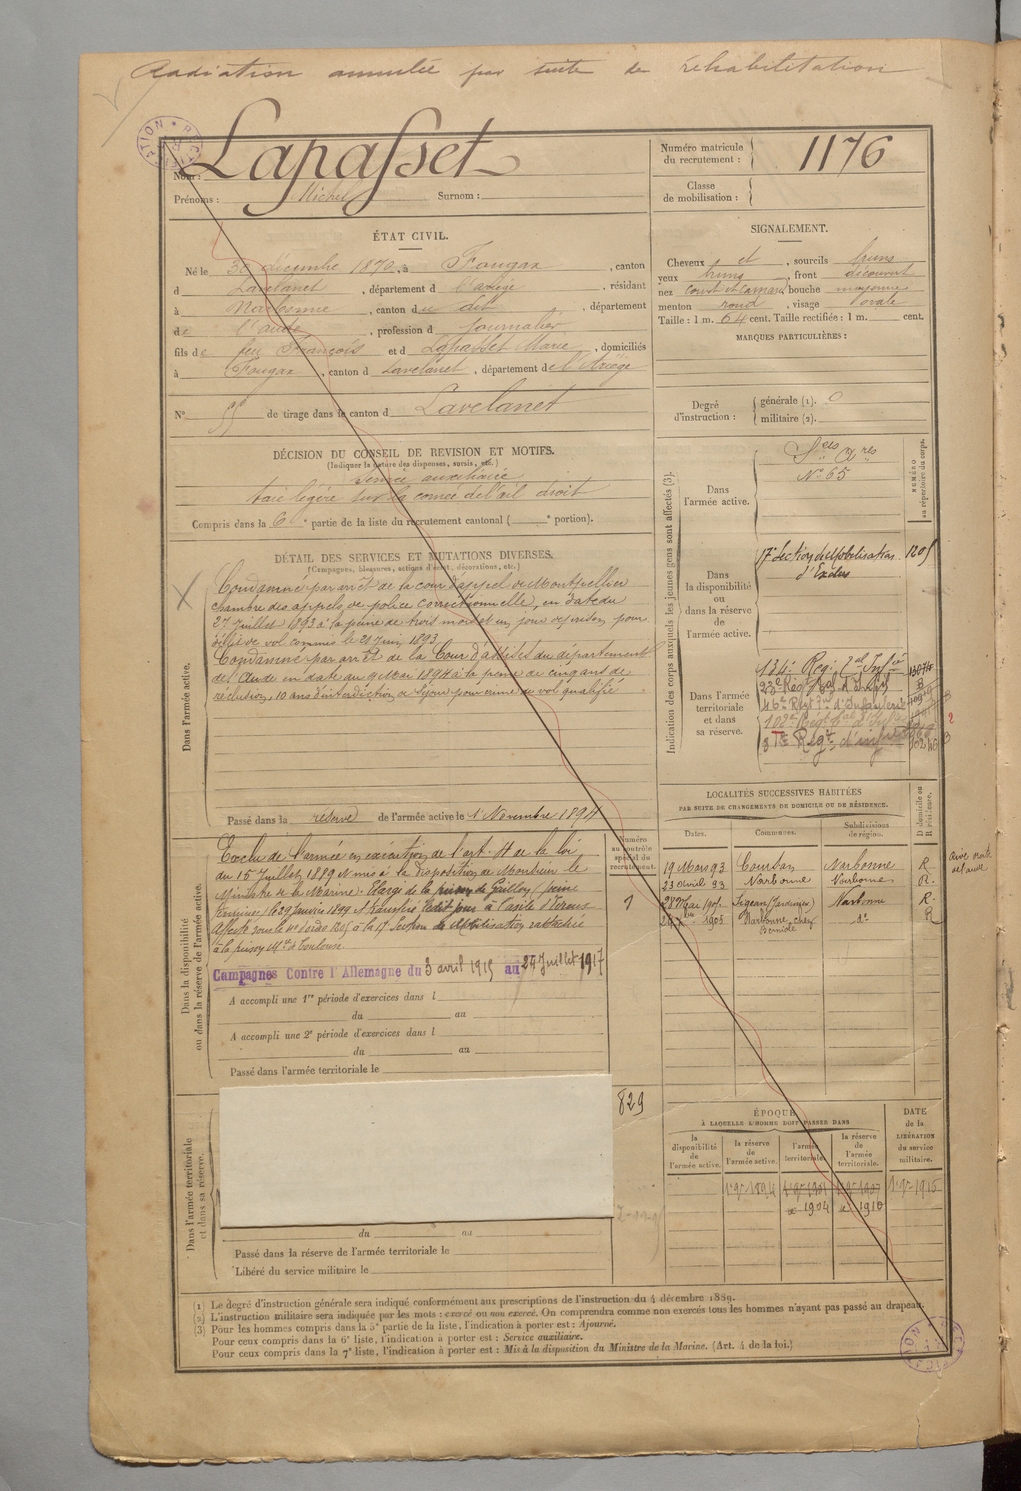 Radiation annulée par suite de réhabilitation
Nom : Lapasset
Prénoms : Michel Surnom :
Numéro matricule du recrutement : 1176
Classe de mobilisation :
ÉTAT CIVIL.
Né le 30 décembre 1870, à Fougax, canton
d Lavelanet, département d l'Ariège, résidant
à Narbonne, canton du dit, département
de l'aude, profession d Journalier
fils de feu François et d Lapasset Marie, domiciliés
à Fougax, canton d Lavelanet, département de l'Ariège
N° 55 de tirage dans le canton d Lavelanet
SIGNALEMENT.
Cheveux et, sourcils bruns
yeux bruns, front découvert
nez court et camard bouche moyenne
menton rond, visage ovale
Taille : 1 m. 64 cent. Taille rectifiée : 1 m. cent.
MARQUES PARTICULIÈRES :
Degré d'instruction : générale (1). 0
militaire (2).
DÉCISION DU CONSEIL DE REVISION ET MOTIFS.
(Indiquer la nature des dispenses, sursis, etc.)
Service auxiliaire
taie légère sur la cornée de l'œil droit
Compris dans la 6e partie de la liste du recrutement cantonal ( e portion).
DÉTAIL DES SERVICES ET MUTATIONS DIVERSES.
(Campagnes, blessures, actions d'éclat, décorations, etc.)
Dans l'armée active.
Condamné par arrêt de la cour d'appel de Montpellier
chambre des appels de police correctionnelle, en date du
27 Juillet 1893 à la peine de trois mois et un jour de prison pour
délit de vol commis le 21 Juin 1893
Condamné par arrêt de la Cour d'assises du département
de l'Aude en date du 9 Mai 1894 à la peine de cinq ans de
réclusion, 10 ans d'interdiction de séjour pour crime de vol qualifié
Passé dans la réserve de l'armée active le 1er Novembre 1894
Indication des corps auxquels les jeunes gens sont affectés (3).
NUMÉRO au répertoire du corps.
Dans l'armée active.
Sces Xres
N° 65
Dans la disponibilité ou dans la réserve de l'armée active.
17e Section de Mobilisation 1205
d'Exclus
Dans l'armée territoriale et dans sa réserve.
LOCALITÉS SUCCESSIVES HABITÉES
PAR SUITE DE CHANGEMENTS DE DOMICILE OU DE RÉSIDENCE.
Dates. Communes. Subdivisions de région. D domicile ou R résidence.
19 Mars 93 Coursan Narbonne R
23 Avril 93 Narbonne Narbonne R.
28 Mai 1901 Sigean Narbonne R.
1903 Narbonne, chez do R
Dans la disponibilité ou dans la réserve de l'armée active.
Numéro au contrôle spécial du recrutement.
1
Exclu de l'armée en exécution de l'art. 4 de la loi
du 15 Juillet 1889 et mis à la disposition de Monsieur le
Ministre de la Marine. Elargi de la prison de Gaillon (peine
terminée) le 29 Janvier 1899 et transféré ledit jour à l'asile d'Evreux
Affecté sous le n° d'ordre 1205 à la 17e Section de Mobilisation rattachée
à la prison Mre de Toulouse.
Campagnes Contre l'Allemagne du 3 avril 1915 au 29 Juillet 1917
A accompli une 1re période d'exercices dans l
du au
A accompli une 2e période d'exercices dans l
du au
Passé dans l'armée territoriale le
Dans l'armée territoriale et dans sa réserve.
829
du au
Passé dans la réserve de l'armée territoriale le
Libéré du service militaire le
ÉPOQUE
À LAQUELLE L'HOMME DOIT PASSER DANS
DATE de la LIBÉRATION du service militaire.
la disponibilité de l'armée active. la réserve de l'armée active. l'armée territoriale. la réserve de l'armée territoriale.
1 9bre 1894 1 9bre 1901 1 9bre 1907 1 9bre 1915
1904 1910
(1) Le degré d'instruction générale sera indiqué conformément aux prescriptions de l'instruction du 4 décembre 1889.
(2) L'instruction militaire sera indiquée par les mots : exercé ou non exercé. On comprendra comme non exercés tous les hommes n'ayant pas passé au drapeau.
(3) Pour les hommes compris dans la 5e partie de la liste, l'indication à porter est : Ajourné.
Pour ceux compris dans la 6e liste, l'indication à porter est : Service auxiliaire.
Pour ceux compris dans la 7e liste, l'indication à porter est : Mis à la disposition du Ministre de la Marine. (Art. 4 de la loi.)